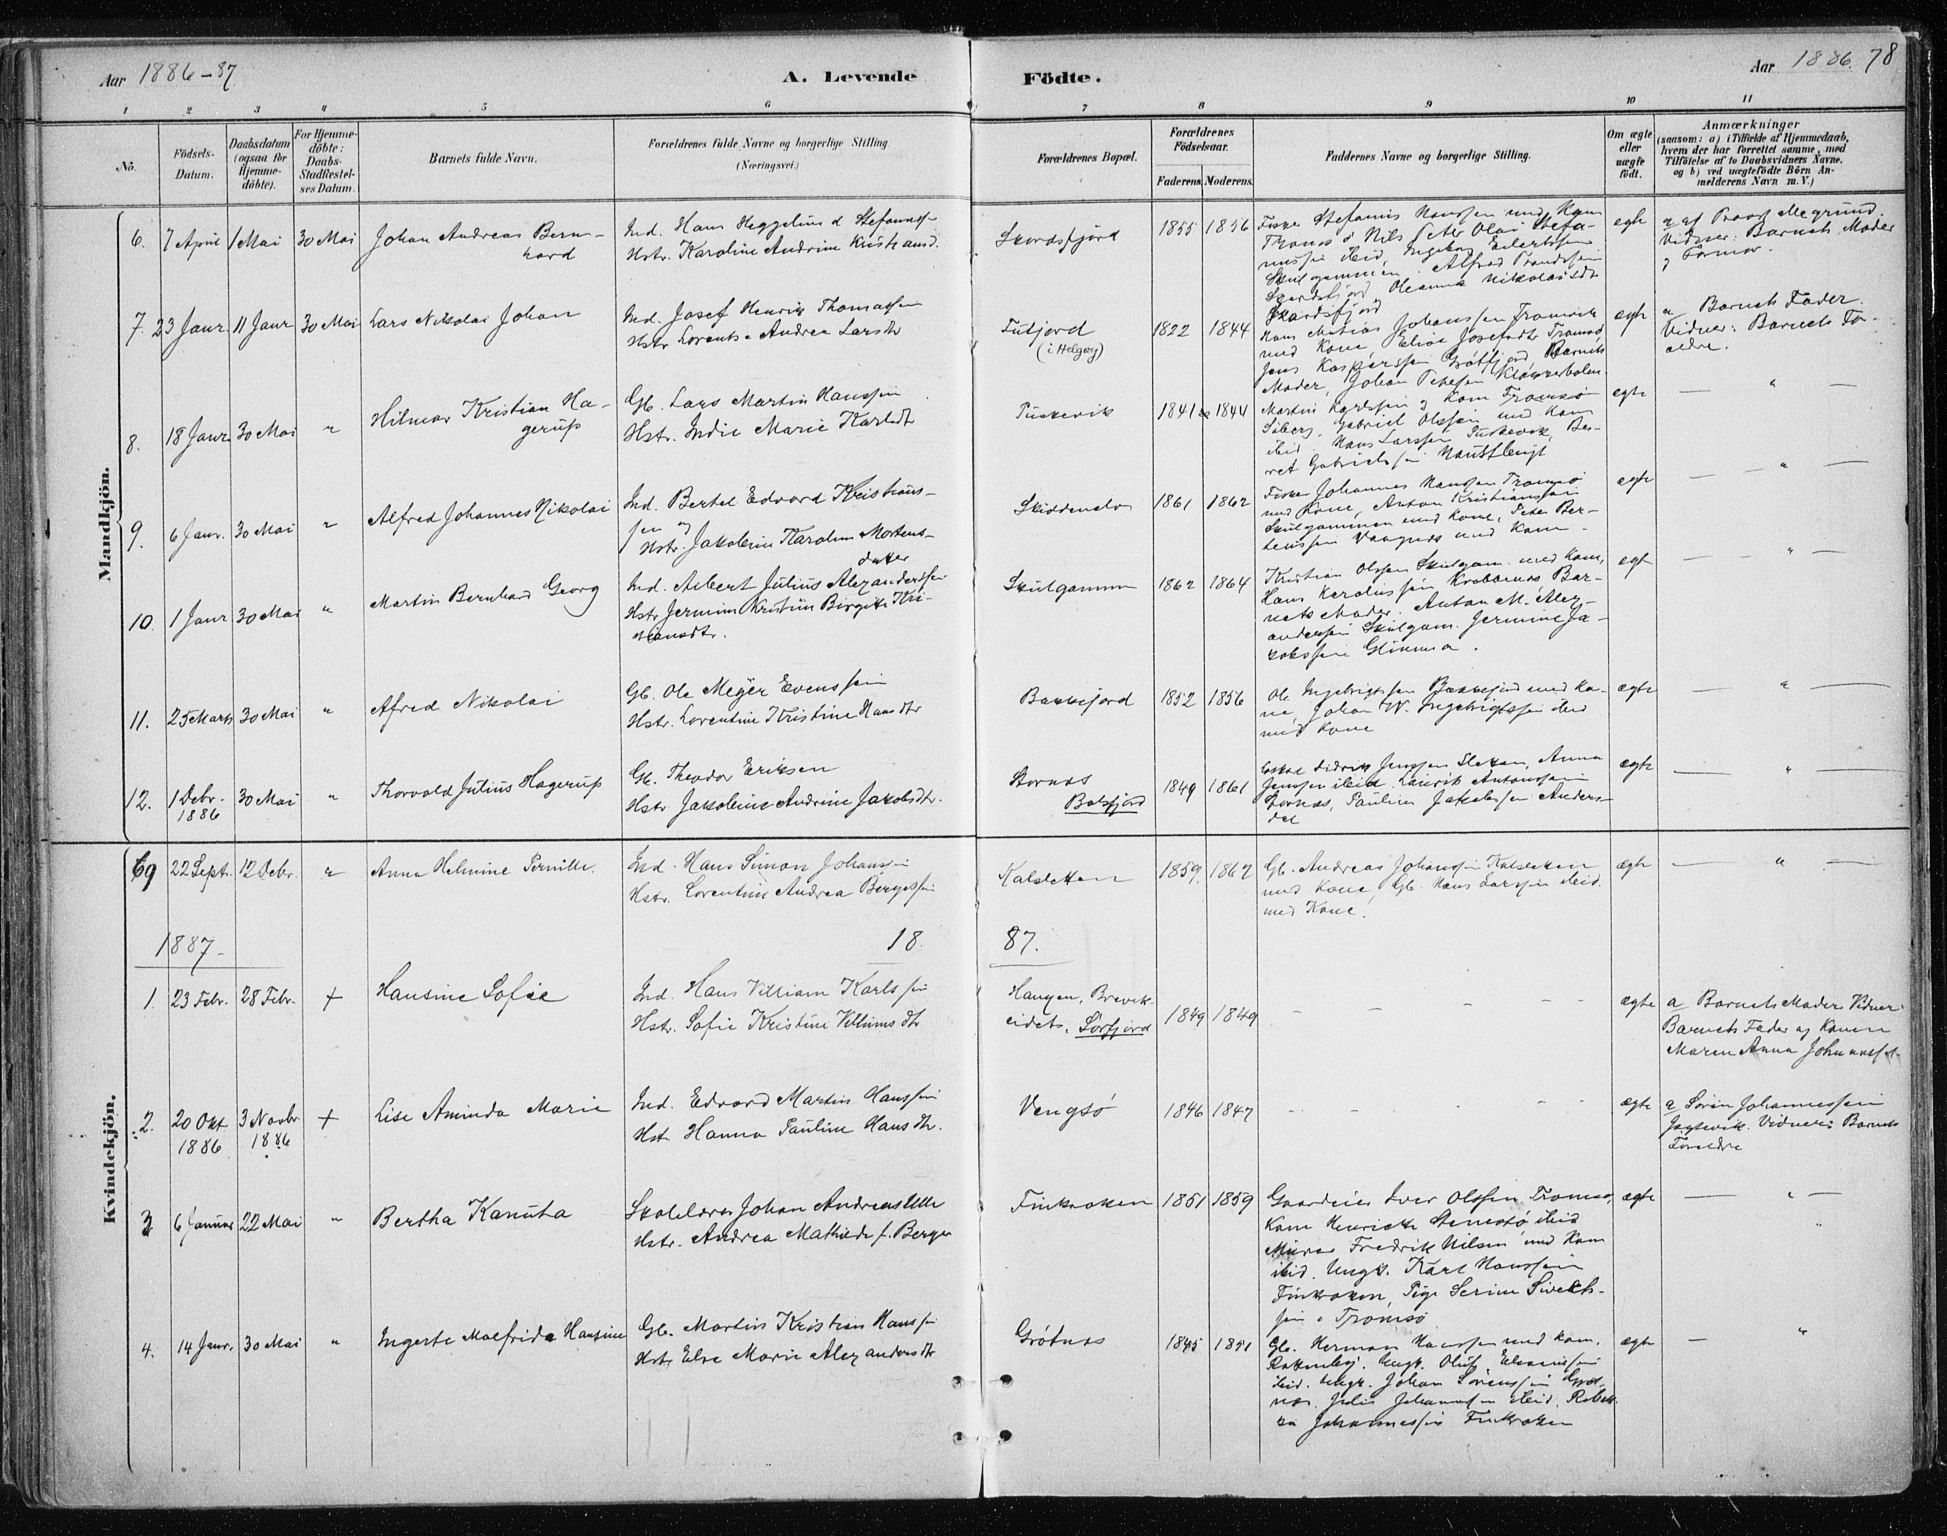 Aar 1886-87
A. Levende Födte.
Aar 1886. 78
1 2 3 4 5 6 7 8 9 10 11
No.
Födsels-Datum.
Daabsdatum (ogsaa för Hjemmedöbte).
For Hjemmedöbte: Daabs-Stadfestelses Datum.
Barnets fulde Navn.
Forældrenes fulde Navne og borgerlige Stilling (Næringsvei.)
Forældrenes Bopæl.
Forældrenes Födselsaar.
Faderens. Moderens.
Faddernes Navne og borgerlige Stilling.
Om ægte eller uægte födt.
Anmærkninger
(saasom: a) i Tilfælde af Hjemmedaab,
hvem der har forrettet samme, med
Tilföielse af to Daabsvidners Navne.
og b) ved uægtefödte Börn An-
melderens Navn m. V.)
Mandkjön.
6. 7 April 1 Mai 30 Mai Johan Andreas Bern-
hard
Ind. Hans Heggelund Stefanus-
Hstr. Karoline Andrine Kristiansd.
1855 1856
Fisker Stefanus Hanssen med Kone
Nils Peter Olai Stefa-
nussen ibid, Ingeborg Eilertssen
Skulgammen. Alfred
Skardsfjord Oleanna Nikolaisdt
Skardsfjord
egte
a af Provst Megrund.
Vidner: Barnets Moder
Farmor.
7. 23 Janr 11 Janr 30 Mai Lars Nikolai Johan
Ind. Josef Henrik Thomassen
Hstr Lorentse Andrea Larsdtr
Tufjord
(i Helgøy)
1822 1844
Hans Matias Johanssen Tromvik
med Kone, Elise Josefsdtr Tromsø
Jens Kasperssen Grøtfjord Barnets
Moder, Johan Petersen
ægte
a Barnets Fader.
Vidner: Barnets Fo-
ældre.
8. 18 Janr 30 Mai "
Hilmar Kristian Ha-
gerup
Gb. Lars Martin Hanssen
Hstr. Indie Marie Karlsdtr
Tuskevik
1841 1844
Martin og Kone Tromsø
Gabriel Olssen med Kone
ibid. Hans Larssen Tuskevik, Be-
ret Gabrielssen
egte
— " —
9. 6 Janr. 30 Mai "
Alfred Johannes Nikolai
Ind. Bertel Edvard Kristians-
sen og
Hstr. Jakobine Karoline Mortens-
datter
1861 1862
Fisker Johannes Hanssen Tromsø
med Kone, Anton Kristianssen
Skulgammen med Kone, Peter Ber-
telssen Vaagnes med Kone.
egte
— " —
10. 1 Janr 30 Mai "
Martin Bernhard Georg
Ind. Albert Julius Alexanderssen
Hstr Jermine Kristine Birgitte Kri-
stiansdtr.
Skulgammen
1862 1864
Kristian Olssen Skulgam. med Kone,
Hans Karolussen Krabbenes Bar-
nets Moder. Anton M. Alex-
anderssen Skulgam. Jermine Ja-
kobssen Glimma.
egt
— " —
11. 25 Marts 30 Mai "
Alfred Nikolai
Gb. Ole Meyer Evenssen
Hstr. Lorentine Kristine Hansdtr
Bakkejord
1852 1856
Ole Ingebrigtssen Bakkejord med Ko-
ne, Johan W. Ingebrigtssen ibid
med Kone
ægte
— " —
12. 1 Debr. 1886 30 Mai "
Thorvald Julius Hagerup
Gb. Theodor Eriksen
Hstr Jakobine Andrine Jakobsdtr.
Stornes
Balsfjord
1849 1861
Didrik Jenssen Sletten, Anna
Jenssen ibid. Laurits Antonssen
Stornes, Pauline Jakobssen Anders-
dal
ægte
— " —
Kvindekjön.
69 22 Sept. 12 Debr. "
Anna Helmine Pernille.
Ind. Hans Simon Johanssen
Hstr. Lorentine Andrea Bergessen
Kalsletten
1859. 1862
Gb. Andreas Johanssen Kalsletten
med Kone, Gb. Hans Larssen ibid.
med Kone.
ægte
— " —
1887. 18 87.
1. 23 Febr. 28 Febr. +
Hansine Sofie
Ind. Hans Villiam Karlssen
Hstr. Sofie Kristine Villiumsdtr
Haugen, Breivik-
eidet, Sørfjord
1849 1849
ægte
a Barnets Moder Vidner:
Barnets Fader og Konen
Maren Anna Johannssen
2. 20 Okt 1886 3 Novbr 1886 +
Lise Aminda Marie
Ind. Edvard Martin Hanssen
Hstr Hanna Pauline Hansdtr.
Vengsø
1846 1847
ægte
a Sørin Johannessen
Jægtevik. Vidner: Barnets
Forældre
3 6 Januar 22 Mai "
Bertha Kanuta
Skolelærer Johan Andreas
Hstr. Andrea Mathilde f. Berger
Finkroken
1851 1859
Gaardeier Iver Olssen Tromsø,
Kone Henrikke Stensø ibid
Murer Fredrik Nilsen med Kone
ibid. Ungk. Karl Hanssen
Finkroken, Pige Serine Sivert-
sen Tromsø
ægte
— " —
4. 14 Janr. 30 Mai "
Ingerte Malfrida Hansine
Gb. Martin Kristian Hanssen
Hstr Else Marie Alexandersdtr
Grøtnes
1845 1851
Gb. Herman Hanssen med Kone,
ibid. Ungk. Johan Sørenssen Grøt-
nes. Julie Johannssen ibid. Rebek-
ka Johannessen Finkroken
ægte
— "